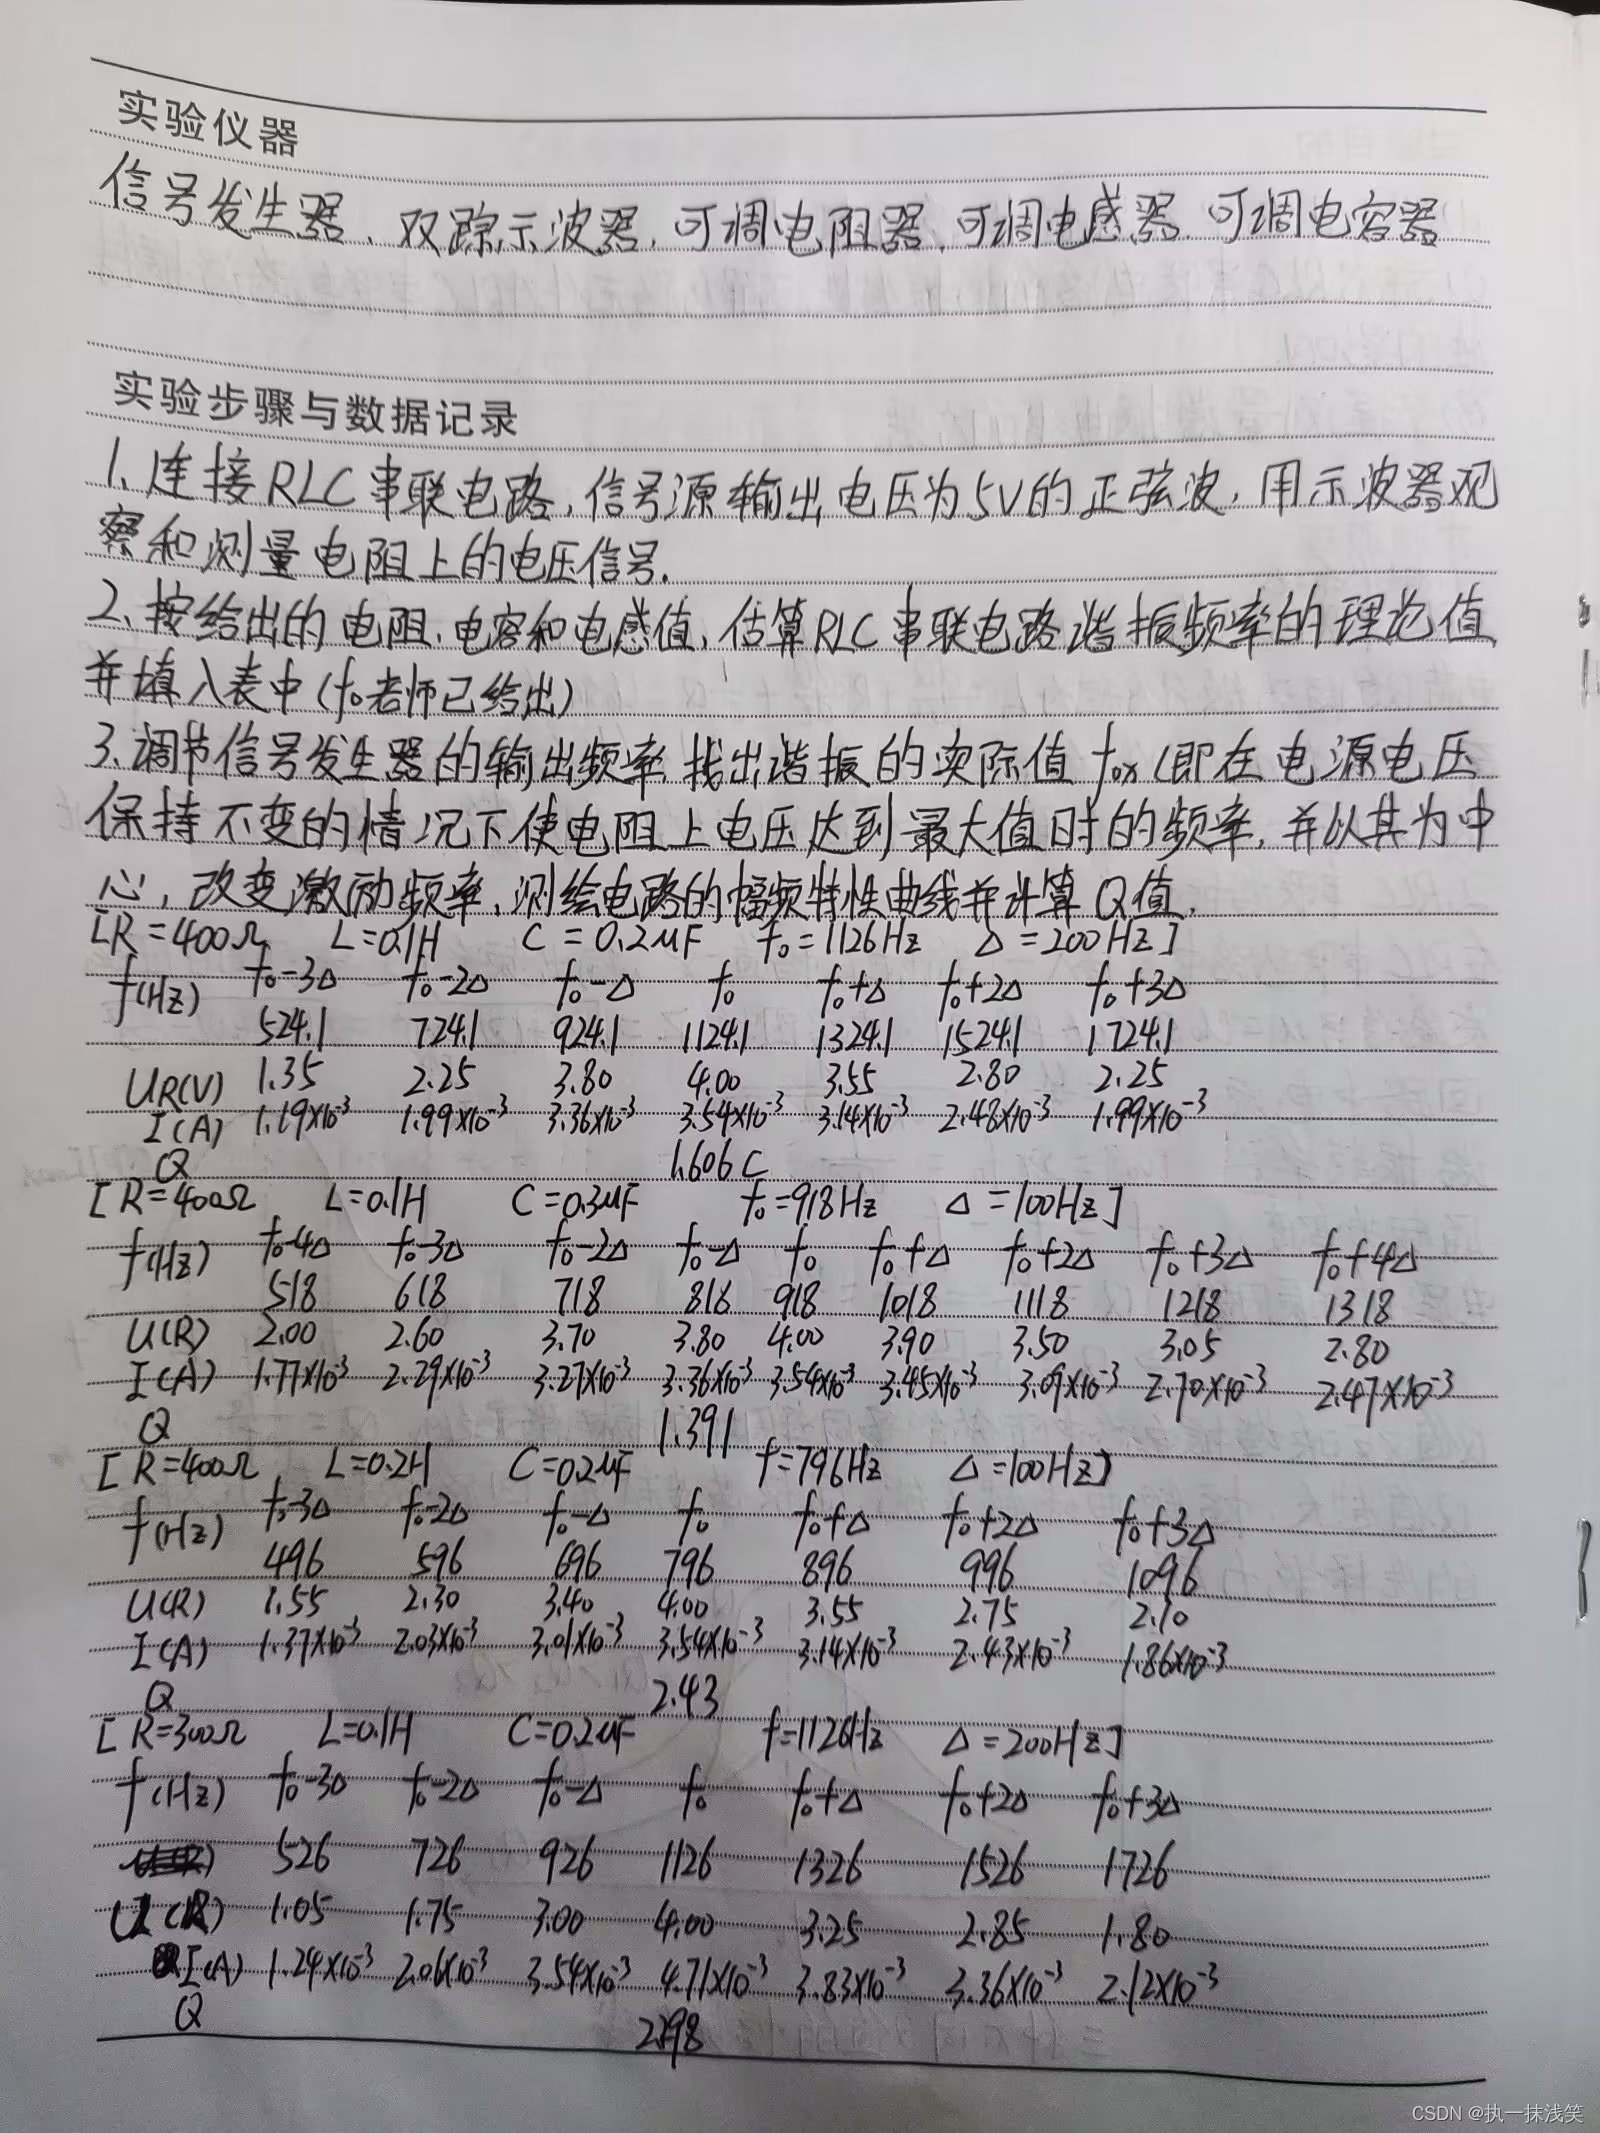 实验仪器
信号发生器、双踪示波器、可调电阻器、可调电感器、可调电容器
实验步骤与数据记录
1、连接RLC串联电路,信号源输出电压为5V的正弦波,用示波器观
察和测量电阻上的电压信号.
2、按给出的电阻、电容和电感值,估算RLC串联电路谐振频率的理论值
并填入表中(f₀老师已给出)
3、调节信号发生器的输出频率,找出谐振的实际值f₀ₓ(即在电源电压
保持不变的情况下使电阻上电压达到最大值时的频率,并以其为中
心,改变激励频率,测绘电路的幅频特性曲线并计算Q值.
[R=400Ω L=0.1H C=0.2μF f₀=1126Hz Δ=200Hz]
f(Hz) f₀-3Δ f₀-2Δ f₀-Δ f₀ f₀+Δ f₀+2Δ f₀+3Δ
524.1 724.1 924.1 1124.1 1324.1 1524.1 1724.1
UR(V) 1.35 2.25 3.80 4.00 3.55 2.80 2.25
I(A) 1.19×10⁻³ 1.99×10⁻³ 3.36×10⁻³ 3.54×10⁻³ 3.14×10⁻³ 2.48×10⁻³ 1.99×10⁻³
Q 1.606
[R=400Ω L=0.1H C=0.3μF f₀=918Hz Δ=100Hz]
f(Hz) f₀-4Δ f₀-3Δ f₀-2Δ f₀-Δ f₀ f₀+Δ f₀+2Δ f₀+3Δ f₀+4Δ
518 618 718 818 918 1018 1118 1218 1318
U(R) 2.00 2.60 3.70 3.80 4.00 3.90 3.50 3.05 2.80
I(A) 1.77×10⁻³ 2.29×10⁻³ 3.27×10⁻³ 3.36×10⁻³ 3.54×10⁻³ 3.45×10⁻³ 3.09×10⁻³ 2.70×10⁻³ 2.47×10⁻³
Q 1.391
[R=400Ω L=0.2H C=0.2μF f=796Hz Δ=100Hz]
f(Hz) f₀-3Δ f₀-2Δ f₀-Δ f₀ f₀+Δ f₀+2Δ f₀+3Δ
496 596 696 796 896 996 1096
U(R) 1.55 2.30 3.40 4.00 3.55 2.75 2.10
I(A) 1.37×10⁻³ 2.03×10⁻³ 3.01×10⁻³ 3.54×10⁻³ 3.14×10⁻³ 2.43×10⁻³ 1.86×10⁻³
Q 2.43
[R=300Ω L=0.1H C=0.2μF f=1126Hz Δ=200Hz]
f(Hz) f₀-3Δ f₀-2Δ f₀-Δ f₀ f₀+Δ f₀+2Δ f₀+3Δ
526 726 926 1126 1326 1526 1726
U(R) 1.05 1.75 3.00 4.00 3.25 2.85 1.80
I(A) 1.24×10⁻³ 2.06×10⁻³ 3.54×10⁻³ 4.71×10⁻³ 3.83×10⁻³ 3.36×10⁻³ 2.12×10⁻³
Q
CSDN @执一抹浅笑